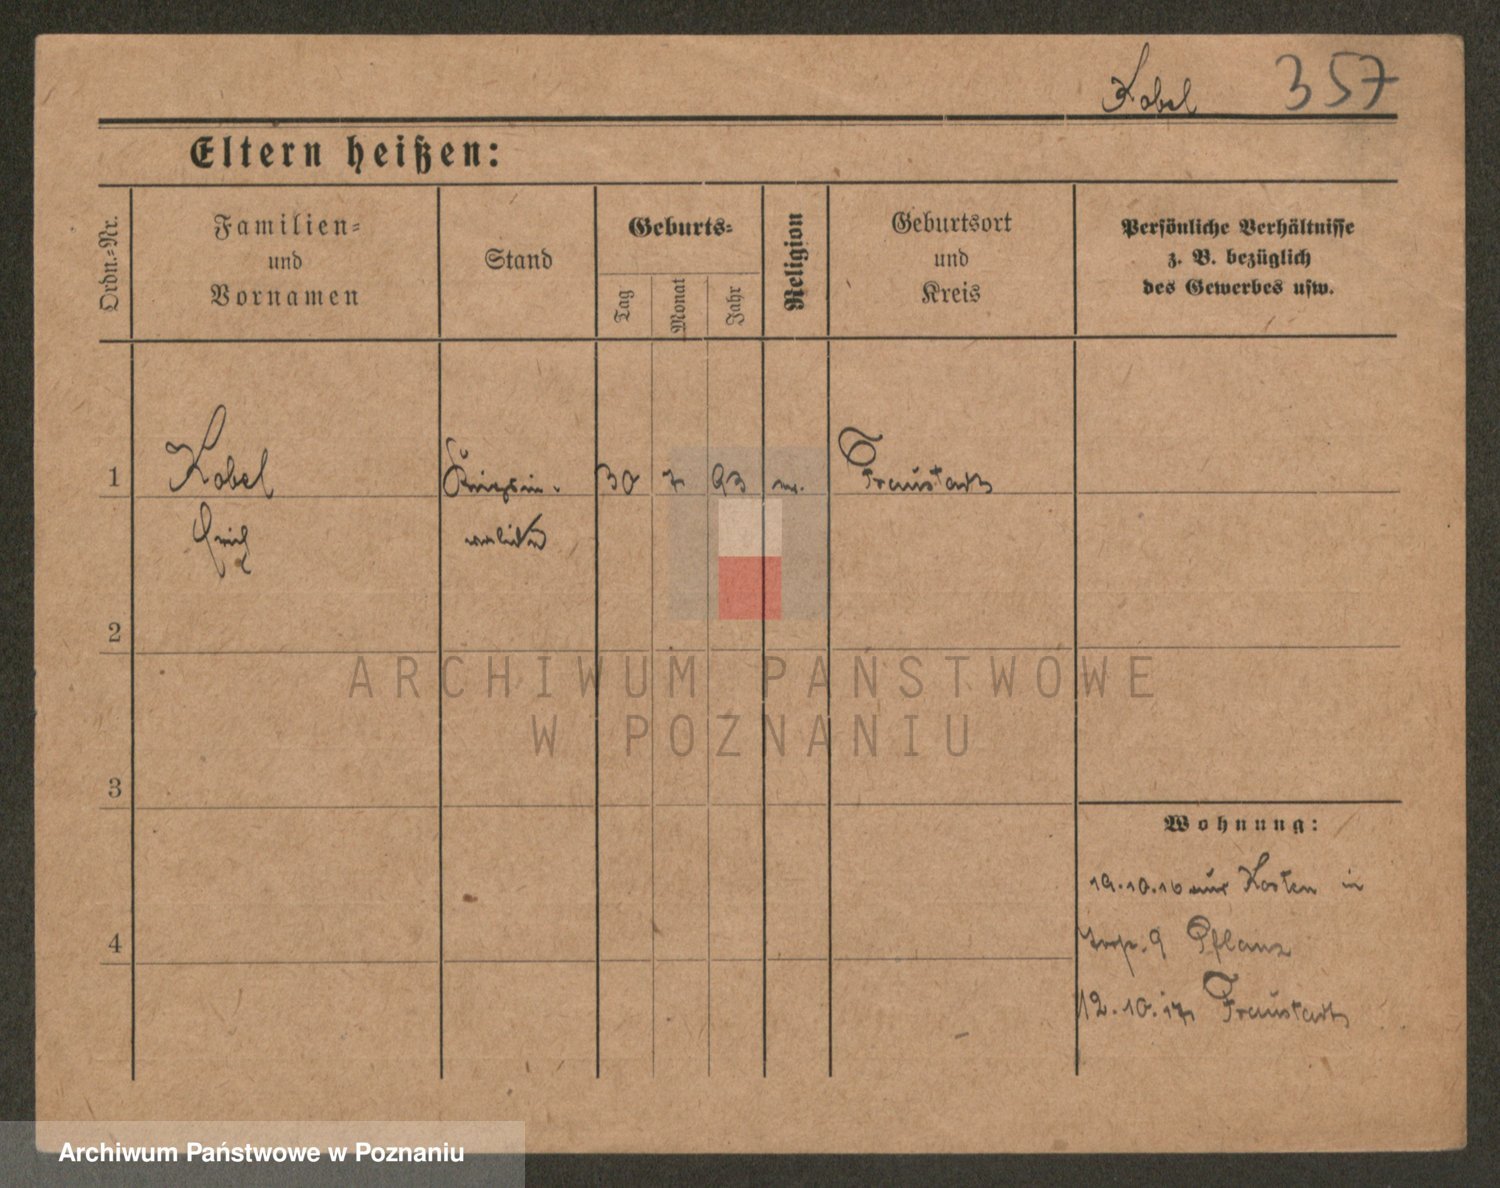 Kobel 357
Eltern heißen:
Ordn.-Nr.
Familien-
und
Vornamen
Stand
Geburts-
Tag
Monat
Jahr
Religion
Geburtsort
und
Kreis
Persönliche Verhältnisse
z. B. bezüglich
des Gewerbes usw.
1 Kobel Kriegsin- 30 7 93 Fraustadt
Erich validen
2
ARCHIWUM PAŃSTWOWE
W POZNANIU
3
Wohnung:
19.10.16 aus Kosten in
9 Pflanz
4
12.10.17 Fraustadt
Archiwum Państwowe w Poznaniu